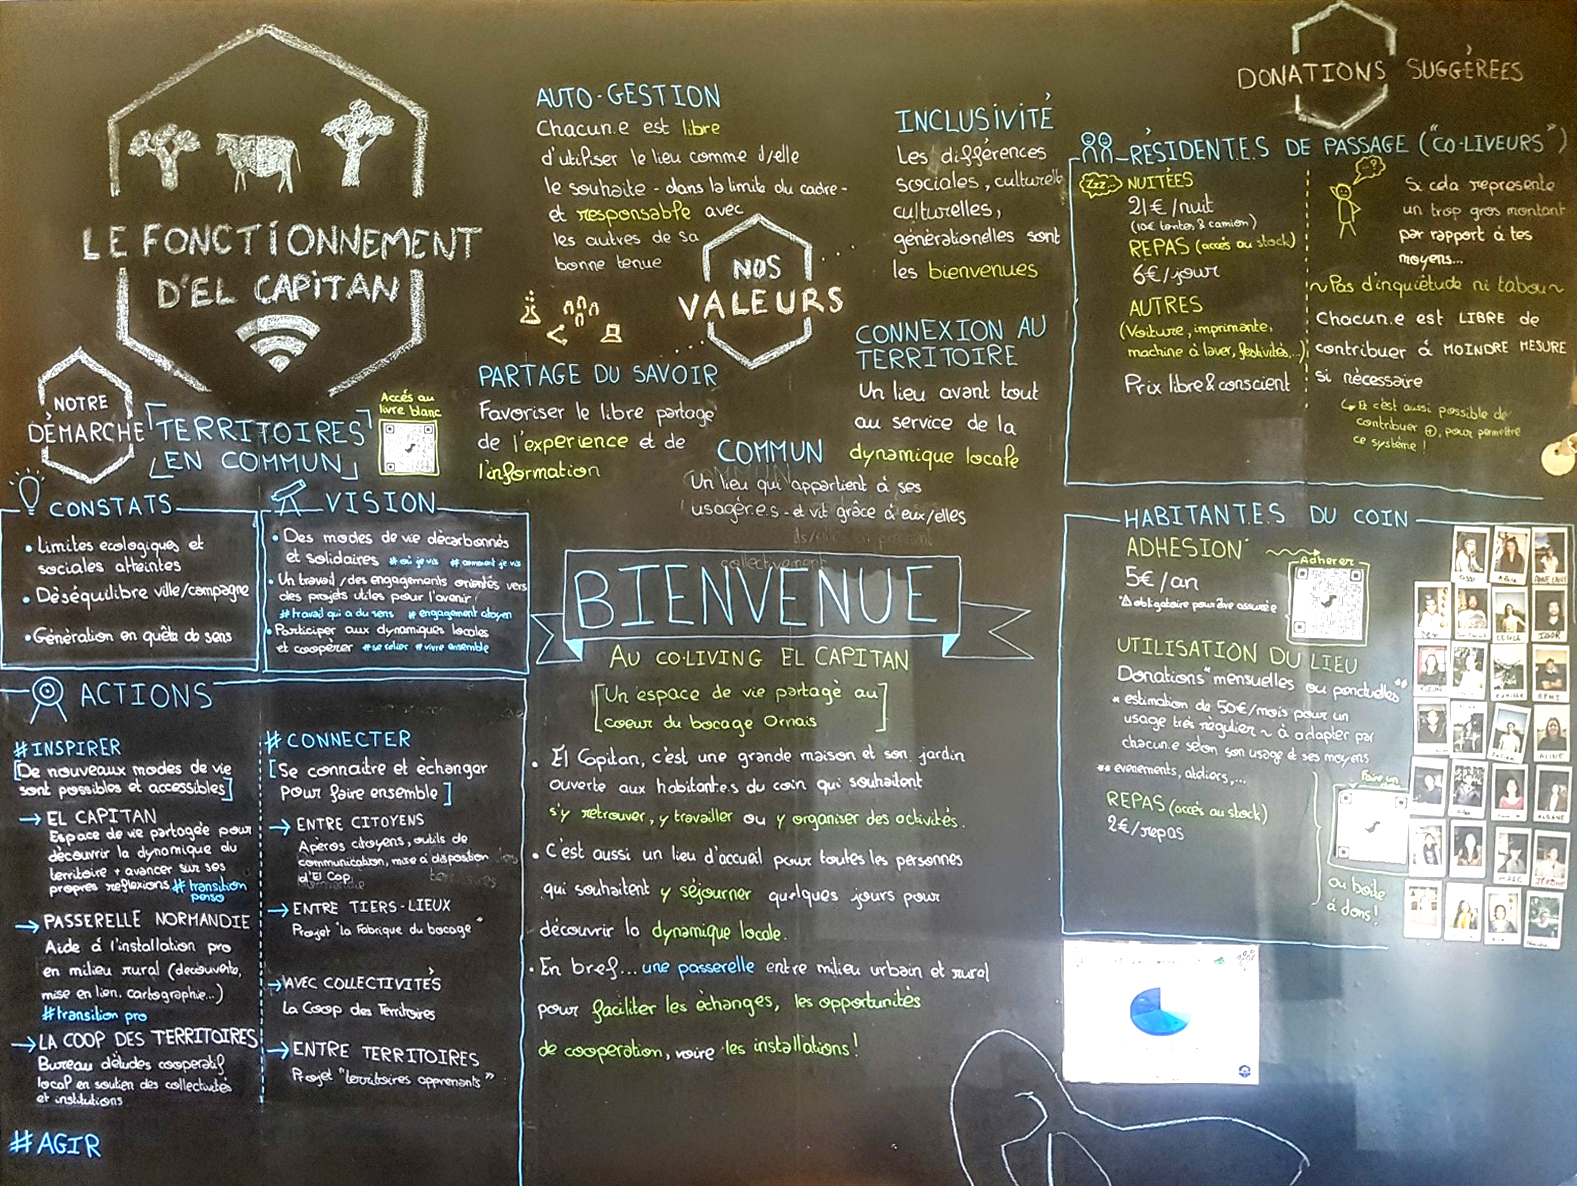 LE FONCTIONNEMENT
D'EL CAPITAN
NOTRE
DÉMARCHE
TERRITOIRES
EN COMMUN
Accès au
livre blanc
CONSTATS
• Limites ecologiques et
sociales atteintes
• Déséquilibre ville/campagne
• Génération en quête de sens
VISION
• Des modes de vie décarbonnés
et solidaires #où je vis #comment je vis
• Un travail/des engagements orientés vers
des projets utiles pour l'avenir!
#travail qui a du sens #engagement citoyen
• Participer aux dynamiques locales
et coopérer #se relier #vivre ensemble
ACTIONS
#INSPIRER
[De nouveaux modes de vie
sont possibles et accessibles]
→ EL CAPITAN
Espace de vie partagée pour
découvrir la dynamique du
territoire + avancer sur ses
propres reflexions #transition
perso
→ PASSERELLE NORMANDIE
Aide à l'installation pro
en milieu rural (découverte,
mise en lien, cartographie...)
#transition pro
→ LA COOP DES TERRITOIRES
Bureau d'études cooperatif
local en soutien des collectivités
et institutions
#AGIR
#CONNECTER
[Se connaitre et échanger
pour faire ensemble]
→ ENTRE CITOYENS
Apéros citoyens, outils de
communication, mise à disposition
d'El Cap
→ ENTRE TIERS-LIEUX
Projet "la Fabrique du bocage"
→ AVEC COLLECTIVITÉS
La Coop des Territoires
→ ENTRE TERRITOIRES
Projet "territoires apprenants"
AUTO-GESTION
Chacun.e est libre
d'utiliser le lieu comme il/elle
le souhaite - dans la limite du cadre -
et responsable avec
les autres de sa
bonne tenue
NOS
VALEURS
INCLUSIVITÉ
Les différences
sociales, culturelle
culturelles,
générationelles sont
les bienvenues
PARTAGE DU SAVOIR
Favoriser le libre partage
de l'experience et de
l'information
CONNEXION AU
TERRITOIRE
Un lieu avant tout
au service de la
dynamique locale
COMMUN
Un lieu qui appartient à ses
usagér.e.s - et vit grâce à eux/elles
collectivement
BIENVENUE
AU CO-LIVING EL CAPITAN
[Un espace de vie partagé au
coeur du bocage Ornais]
• El Capitan, c'est une grande maison et son jardin
ouverte aux habitant.e.s du coin qui souhaitent
s'y retrouver, y travailler ou y organiser des activités.
• C'est aussi un lieu d'accueil pour toutes les personnes
qui souhaitent y séjourner quelques jours pour
découvrir la dynamique locale.
• En bref... une passerelle entre milieu urbain et rural
pour faciliter les échanges, les opportunités
de cooperation, voire les installations!
DONATIONS SUGGÉRÉES
RÉSIDENT.E.S DE PASSAGE ("CO-LIVEURS")
Zzz..
NUITÉES
21€/nuit
(10€ tentes & camion)
REPAS (accés au stock)
6€/jour
AUTRES
(Voiture, imprimante,
machine à laver, festivités,...)
Prix libre & conscient
Si cela représente
un trop gros montant
par rapport à tes
moyens...
~Pas d'inquiétude ni tabou~
Chacun.e est LIBRE de
contribuer à MOINDRE MESURE
si nécessaire
↳ Et c'est aussi possible de
contribuer ⊕, pour permettre
ce système!
HABITANT.E.S DU COIN
ADHESION*
5€/an
*⚠ obligatoire pour être assuré.e
Adherer
UTILISATION DU LIEU
Donations* mensuelles ou ponctuelles**
* estimation de 50€/mois pour un
usage très régulier ~ à adapter par
chacun.e selon son usage et ses moyens
** evenements, ateliers,...
REPAS (accés au stock)
2€/repas
Faire un
ou boite
à dons!